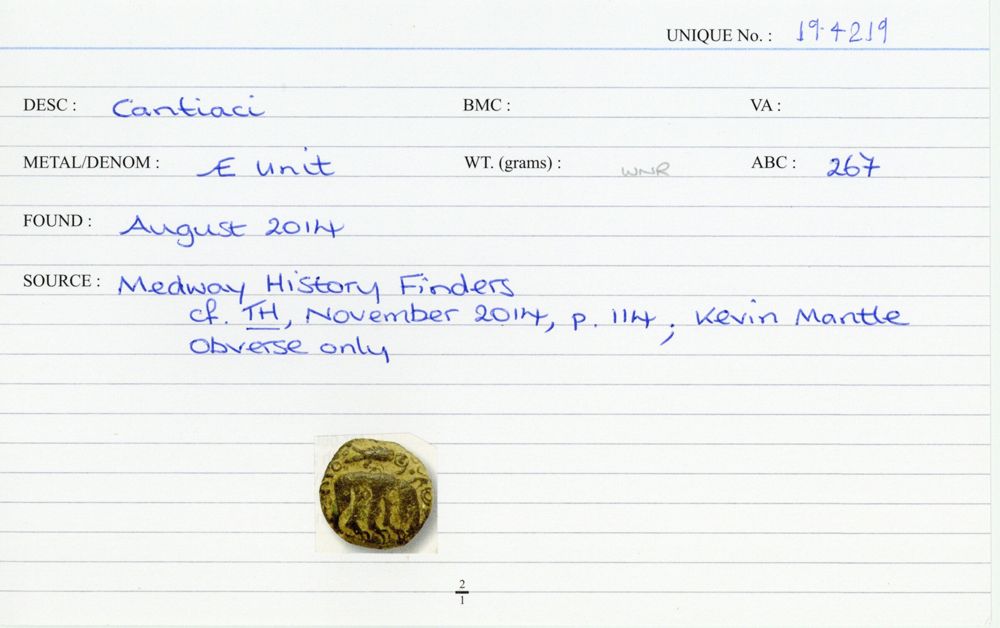 UNIQUE No. : 19.4219
DESC : Cantiaci BMC : VA :
METAL/DENOM : Æ unit WT. (grams) : WNR ABC : 267
FOUND : August 2014
SOURCE : Medway History Finders
cf. TH, November 2014, p. 114; Kevin Mantle
Obverse only
2
1